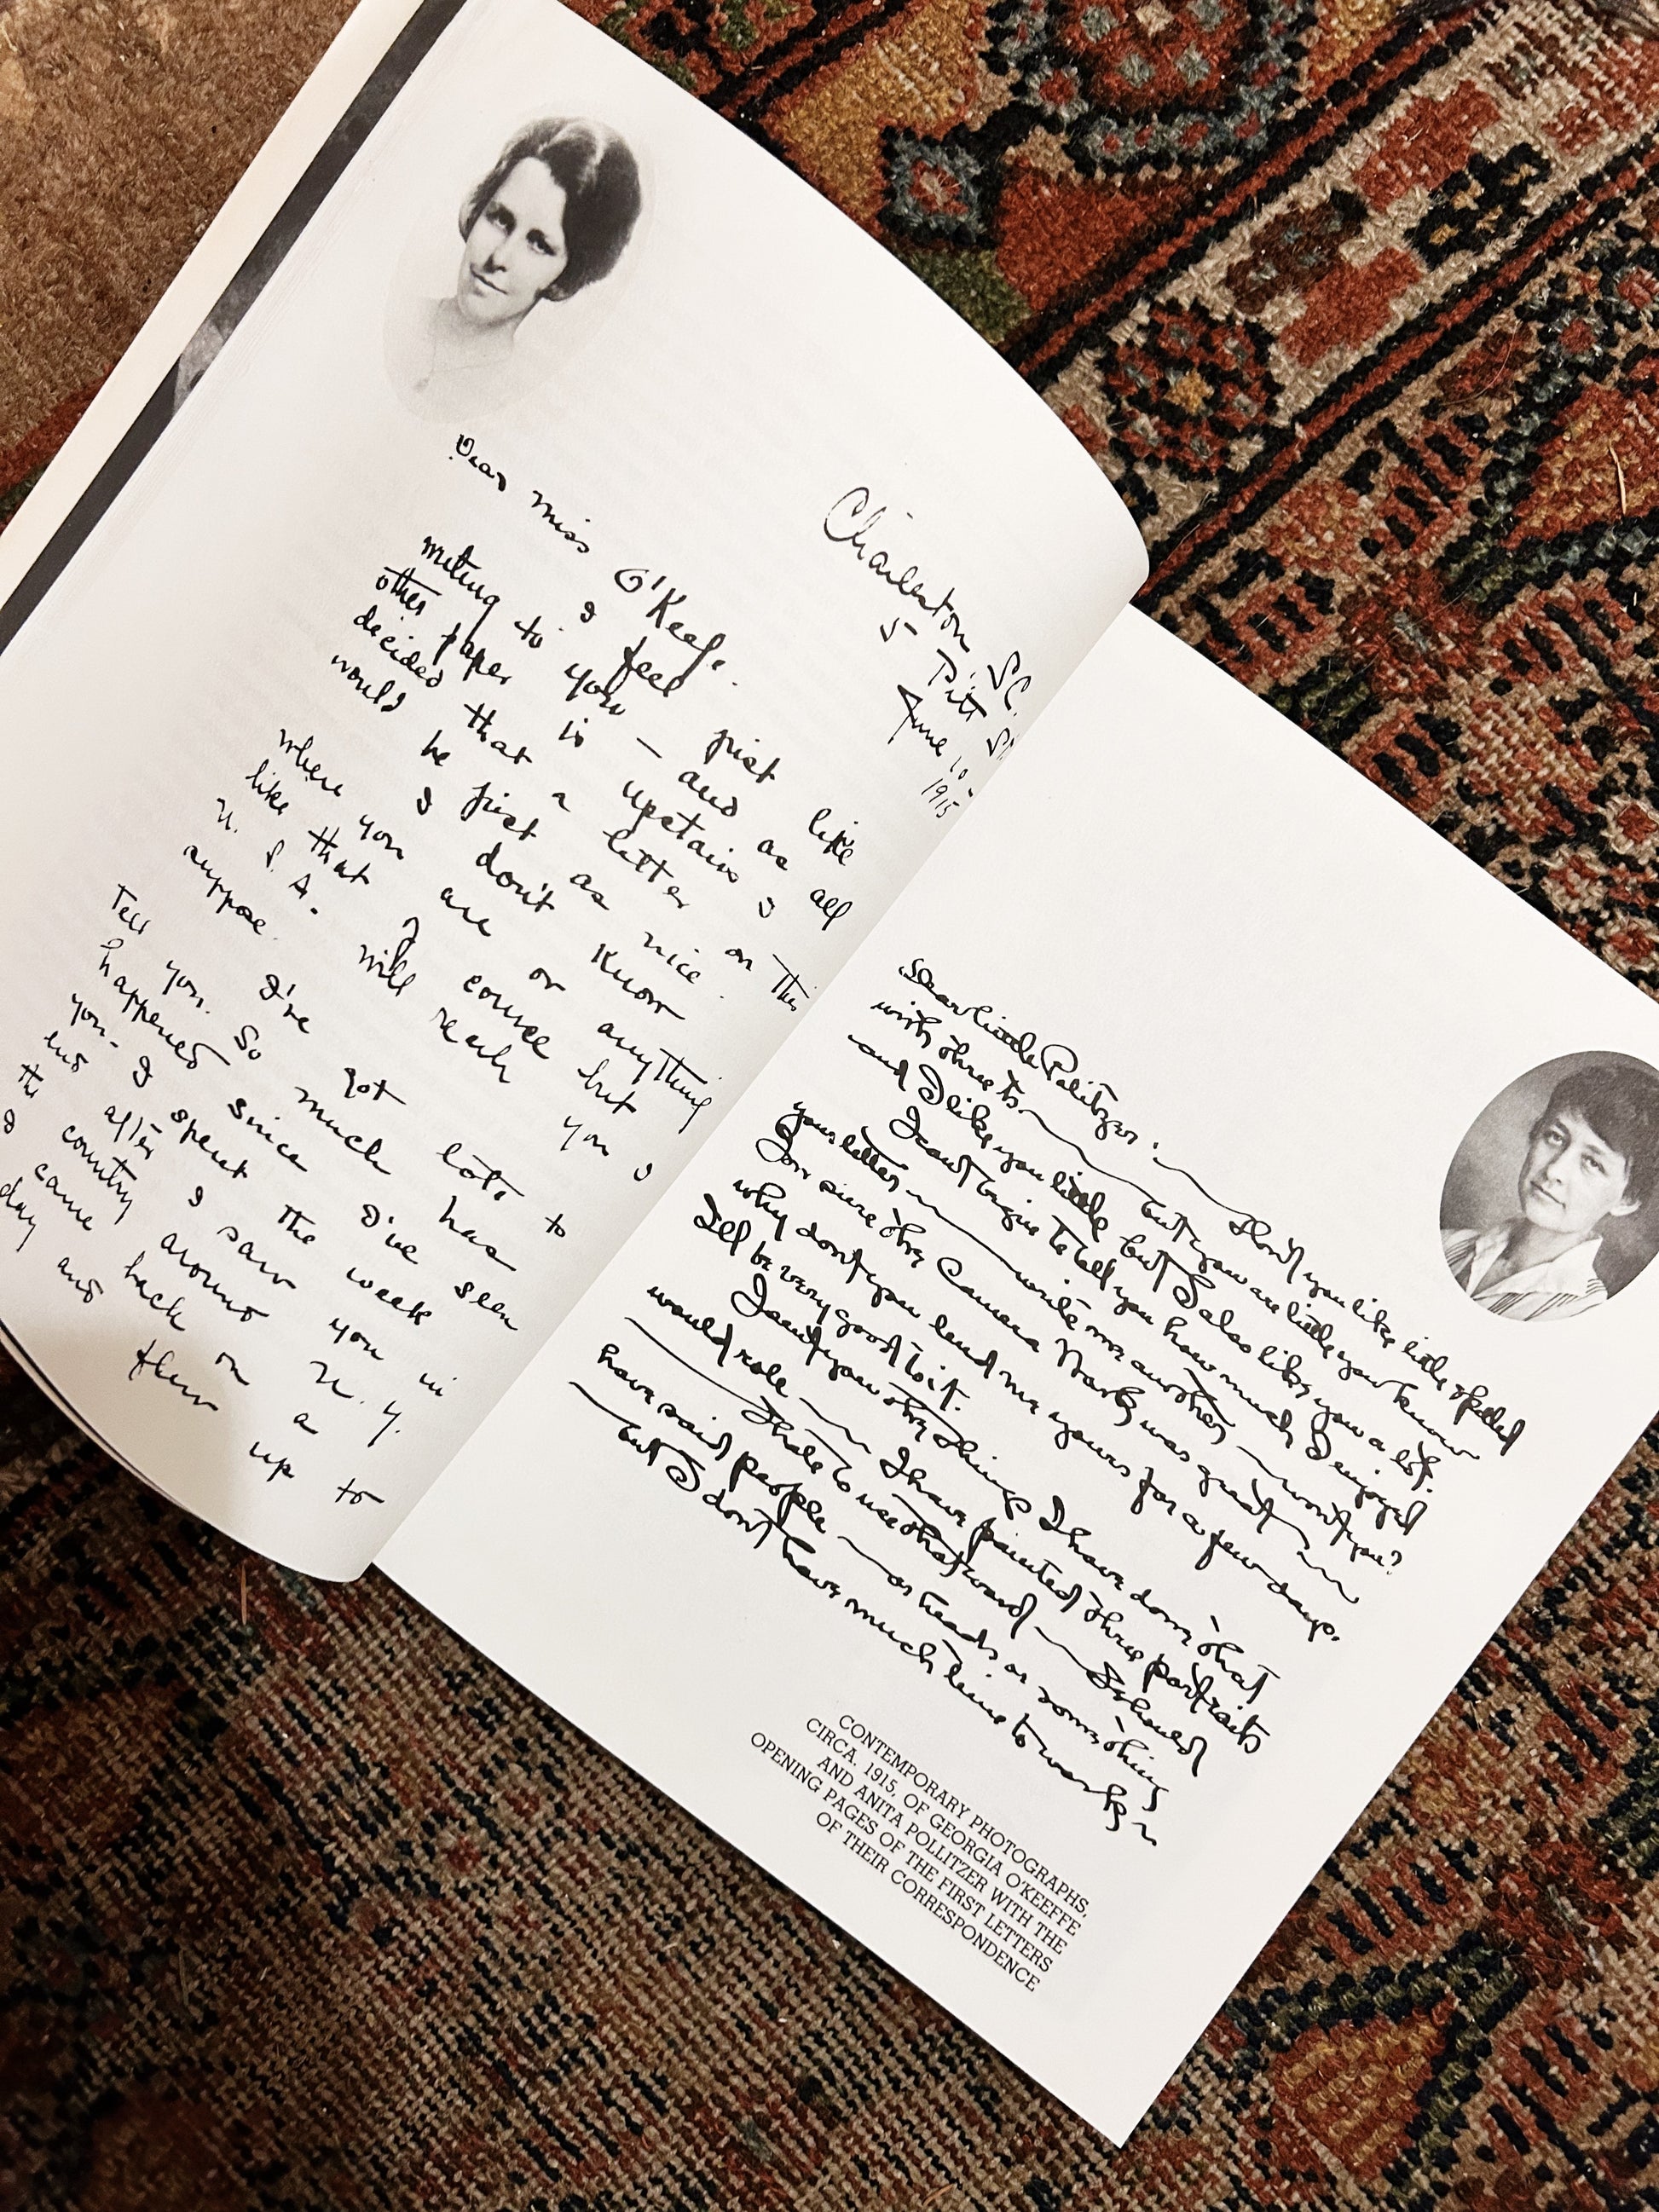 Charleston, S.C.
5 Pitt St.
June 10 - 1915
Dear Miss O'Keefe.
I feel just like
writing to you — and as all
other paper is upstairs I
decided that a letter on this
would be just as nice.
I don't know
where you are or anything
like that of course but
U. S. A. will reach you I
suppose.
I've got lots to
tell you. So much has
happened since I've seen
you. I spent the week
end after I saw you in
the country around N. Y.
I came back on a
day and then up to
Dear little Politzer.
with three ts. — but you are little you know
and I like you little but I also like you a lot.
I cant begin to tell you how much I enjoyed
your letter — write me another — wont you?
Im sure the Camera Work was great
why dont you lend me yours for a few days.
Ill be very good to it.
I sent you the things I have done that
would role — I have painted three portraits
— I hate to use that word — I should
have said people — or heads or something
— but I dont have much time to work
CONTEMPORARY PHOTOGRAPHS,
CIRCA, 1915, OF GEORGIA O'KEEFFE
AND ANITA POLLITZER WITH THE
OPENING PAGES OF THE FIRST LETTERS
OF THEIR CORRESPONDENCE